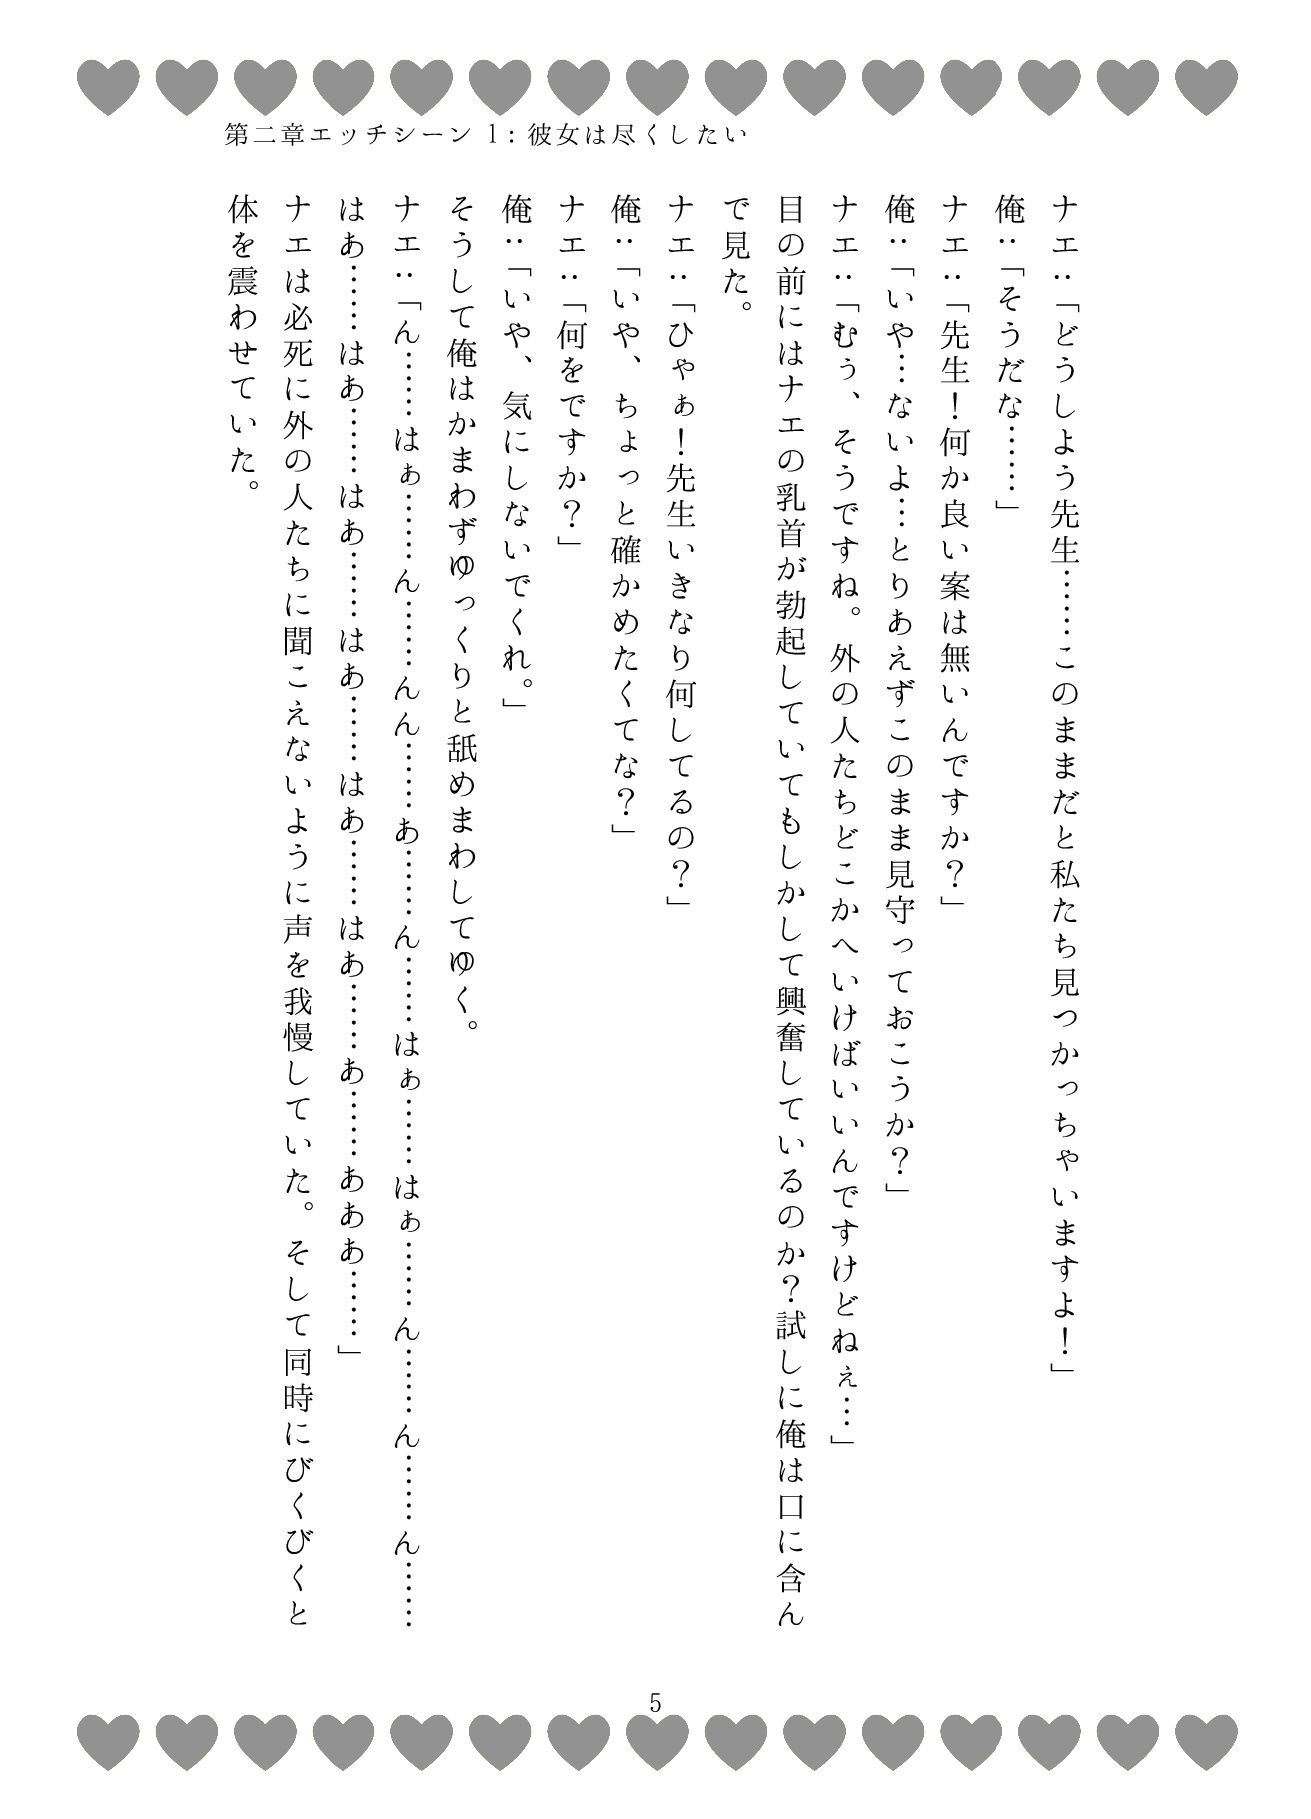 第二章エッチシーン 1: 彼女は尽くしたい
ナエ:「どうしよう先生……このままだと私たち見つかっちゃいますよ！」
俺:「そうだな……」
ナエ:「先生！何か良い案は無いんですか？」
俺:「いや…ないよ…とりあえずこのまま見守っておこうか？」
ナエ:「むぅ、そうですね。外の人たちどこかへいけばいいんですけどねぇ…」
目の前にはナエの乳首が勃起していてもしかして興奮しているのか？試しに俺は口に含ん
で見た。
ナエ:「ひゃぁ！先生いきなり何してるの？」
俺:「いや、ちょっと確かめたくてな？」
ナエ:「何をですか？」
俺:「いや、気にしないでくれ。」
そうして俺はかまわずゆっくりと舐めまわしてゆく。
ナエ:「ん……はぁ……ん……んん……あ……ん……はぁ……はぁ……ん……ん……ん……
はあ……はあ……はあ……はあ……はあ……はあ……あ……あああ……」
ナエは必死に外の人たちに聞こえないように声を我慢していた。そして同時にびくびくと
体を震わせていた。
5